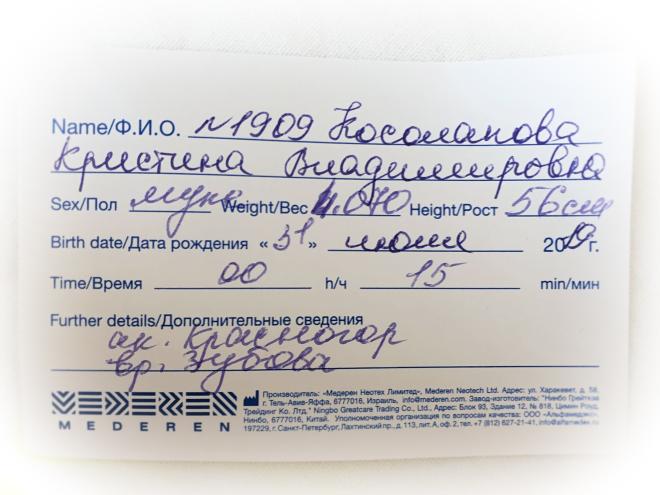 Name/Ф.И.О. №1909 Косолапова
Кристина Владимировна
Sex/Пол муж. Weight/Вес 4.070 Height/Рост 56см
Birth date/Дата рождения «31» июля 2019г.
Time/Время 00 h/ч 15 min/мин
Further details/Дополнительные сведения
ак. Красногор
вр. Зубова
MEDEREN
Производитель: «Медерен Неотех Лимитед», Mederen Neotech Ltd. Адрес: ул. Харакевет, д. 58,
г. Тель-Авив-Яффа, 6777016, Израиль, info@mederen.com. Завод-изготовитель: "Нинбо Грейткеа
Трейдинг Ко. Лтд." Ningbo Greatcare Trading Co., Ltd., Адрес: Блок 93, Здание 12, № 818, Цимин Роуд,
Нинбо, 6777016, Китай. Уполномоченная организация по вопросам качества: ООО «Альфамедэкс»,
197229, г. Санкт-Петербург, Лахтинский пр., д. 113, лит. А, оф. 2, тел. +7 (812) 627-21-41, info@alfamedex.ru